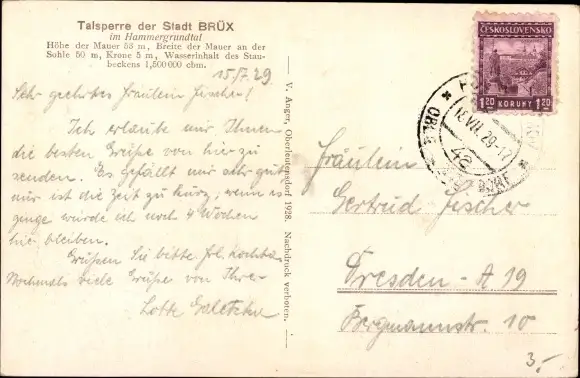 Talsperre der Stadt BRÜX
im Hammergrundtal
Höhe der Mauer 53 m, Breite der Mauer an der
Sohle 50 m, Krone 5 m, Wasserinhalt des Stau-
beckens 1,500 000 cbm.
15./7. 29
Sehr geehrtes Fräulein Fischer!
Ich erlaube mir, Ihnen
die besten Grüße von hier zu
senden. Es gefällt mir sehr gut
nur ist die Zeit zu kurz, wenn es
ginge würde ich noch 4 Wochen
hie bleiben.
Grüßen Sie bitte Frl.
Nochmals viele Grüße von Ihrer
Lotte
V. Anger, Oberleutensdorf 1928. Nachdruck verboten.
ČESKOSLOVENSKO
1.20 KORUNY 1.20
16.VII.29-17
4a
Fräulein
Gertrud Fischer
Dresden-A 19
Bergmannstr. 10
3,-